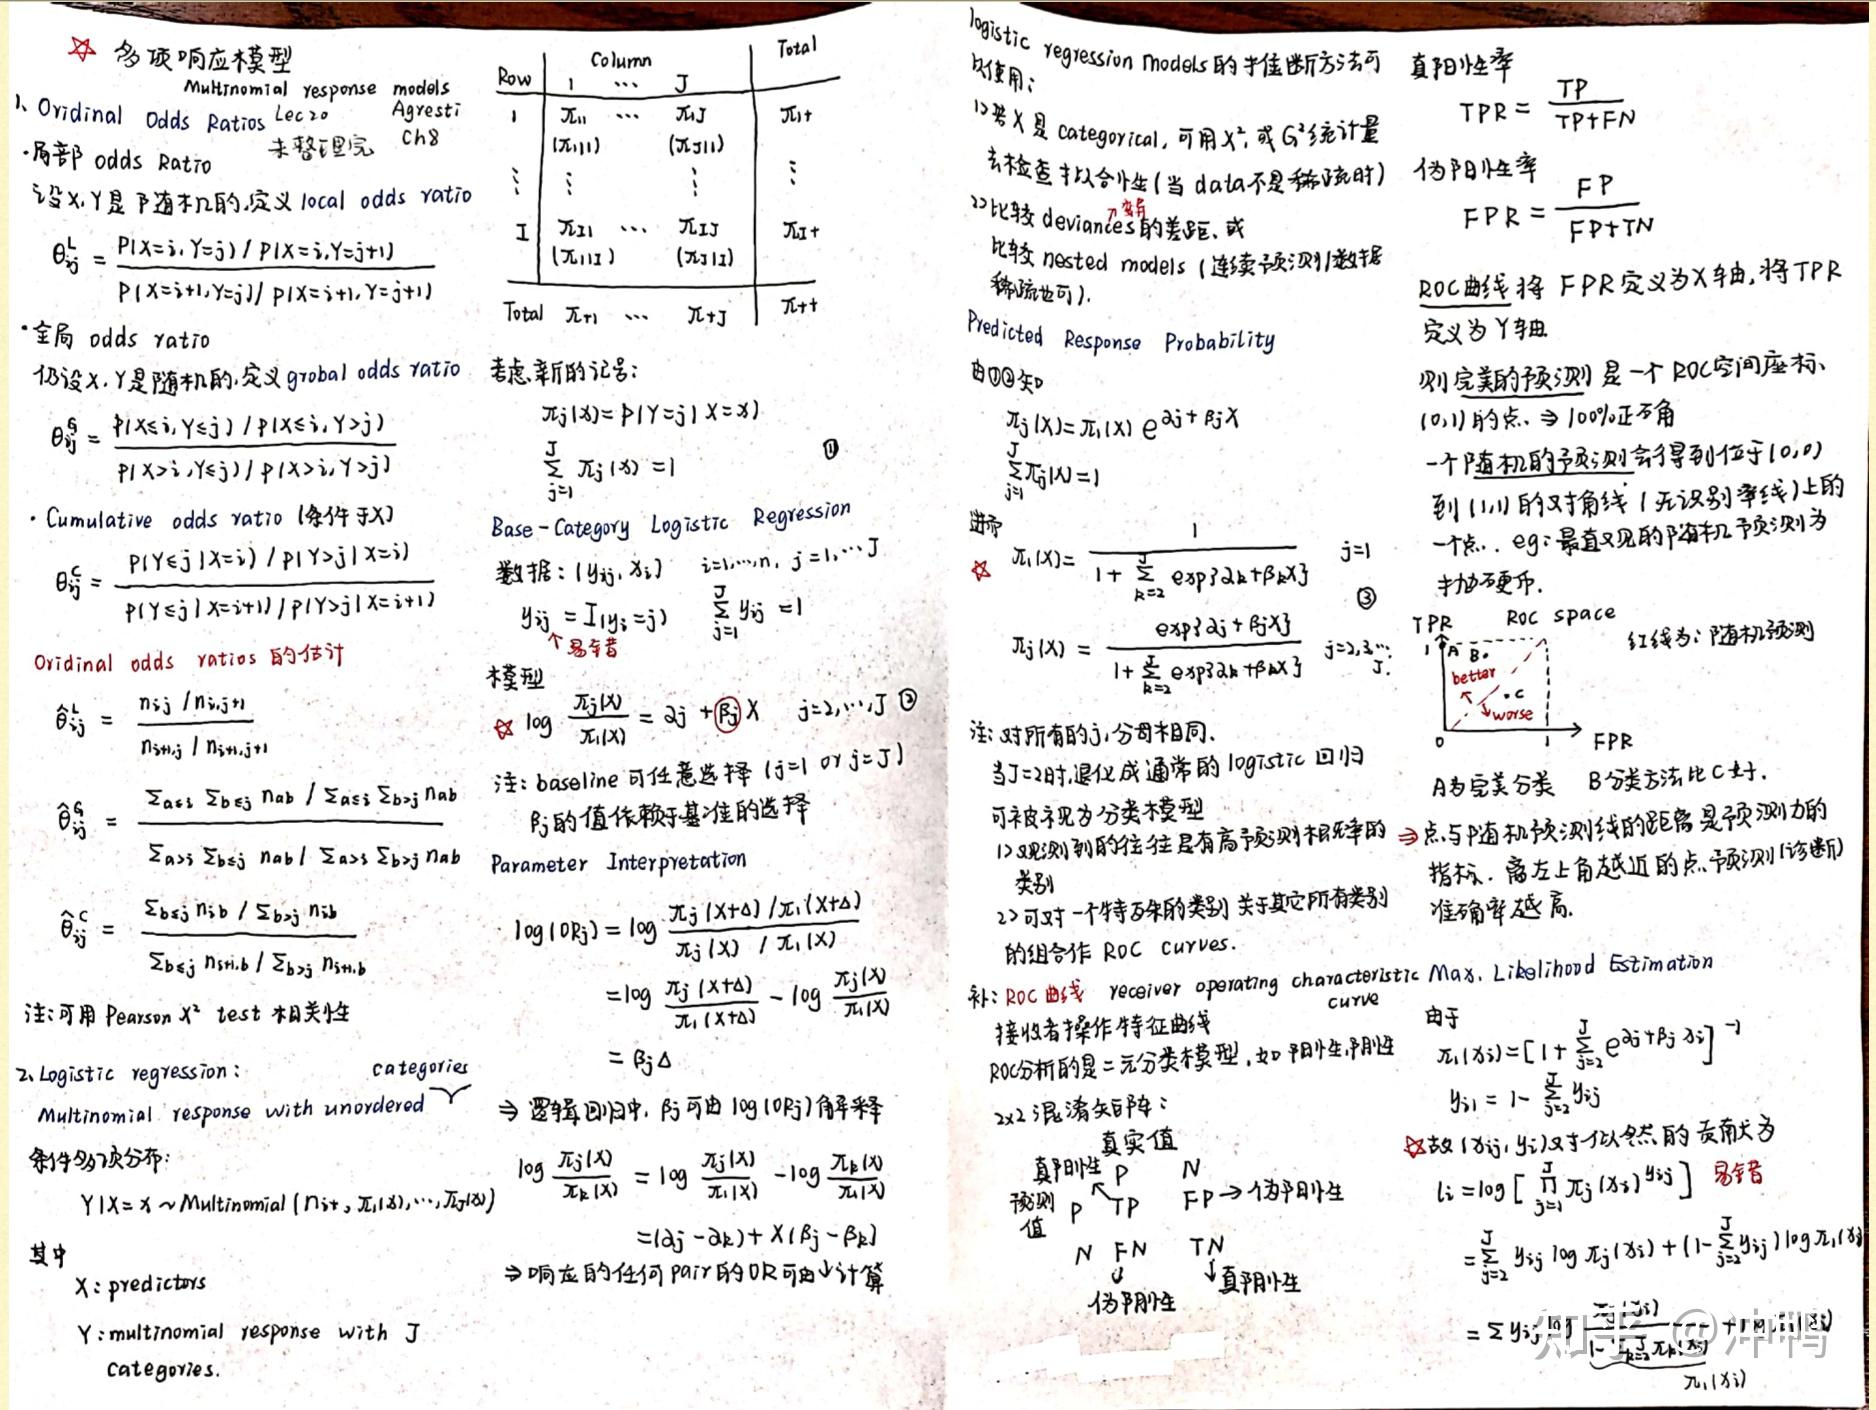 ☆ 多项响应模型
Multinomial response models
1. Oridinal Odds Ratios Lec20 Agresti
未整理完 Ch8
·局部 odds Ratio
设X,Y是随机的,定义 local odds ratio
θ^L_ij = P(X=i,Y=j) / P(X=i,Y=j+1)
P(X=i+1,Y=j) / P(X=i+1,Y=j+1)
·全局 odds ratio
仍设X,Y是随机的,定义grobal odds ratio
θ^G_ij = P(X≤i,Y≤j) / P(X≤i,Y>j)
P(X>i,Y≤j) / P(X>i,Y>j)
· Cumulative odds ratio (条件于X)
θ^C_ij = P(Y≤j|X=i) / P(Y>j|X=i)
P(Y≤j|X=i+1) / P(Y>j|X=i+1)
Oridinal odds ratios 的估计
θ̂^L_ij = n_ij / n_i,j+1
n_i+1,j / n_i+1,j+1
θ̂^G_ij = Σ_a≤i Σ_b≤j n_ab / Σ_a≤i Σ_b>j n_ab
Σ_a>i Σ_b≤j n_ab / Σ_a>i Σ_b>j n_ab
θ̂^C_ij = Σ_b≤j n_ib / Σ_b>j n_ib
Σ_b≤j n_i+1,b / Σ_b>j n_i+1,b
注:可用 Pearson X² test 相关性
2. Logistic regression: categories
Multinomial response with unordered
条件多项分布:
Y|X=x ~ Multinomial (n_i+, π_1(x), ..., π_J(x))
其中
X: predictors
Y: multinomial response with J
categories.
Row Column Total
1 ... J
1 π_11 ... π_1J π_1+
(π_1|1) (π_J|1)
⋮ ⋮ ⋮ ⋮
I π_I1 ... π_IJ π_I+
(π_1|I) (π_J|I)
Total π_+1 ... π_+J π_++
考虑新的记号:
π_j(x) = P(Y=j|X=x)
Σ_{j=1}^J π_j(x) = 1 ①
Base-Category Logistic Regression
数据: (y_ij, x_i) i=1,...,n, j=1,...J
y_ij = I(y_i=j) Σ_{j=1}^J y_ij = 1
↑易错
模型
☆ log π_j(X)/π_1(X) = α_j + β_j X j=2,...,J ②
注: baseline 可任意选择 (j=1 or j=J)
β_j的值依赖于基准的选择
Parameter Interpretation
log(OR_j) = log π_j(X+Δ) / π_1(X+Δ)
π_j(X) / π_1(X)
= log π_j(X+Δ)/π_1(X+Δ) - log π_j(X)/π_1(X)
= β_j Δ
⇒ 逻辑回归中, β_j可由log(OR_j)解释
log π_j(X)/π_k(X) = log π_j(X)/π_1(X) - log π_k(X)/π_1(X)
= (α_j - α_k) + X(β_j - β_k)
⇒ 响应的任何pair的OR可由↓计算
logistic regression models的推断方法可
以使用:
1> 若X是categorical, 可用X², 或G²统计量
去检查拟合性(当data不是稀疏时)
↗变异
2> 比较deviances的差距,或
比较nested models (连续预测/数据
稀疏也可).
Predicted Response Probability
由①②知
π_j(X) = π_1(X) e^{α_j + β_j X}
Σ_{j=1}^J π_j(X) = 1
进而
☆ π_1(X) = 1 / 1 + Σ_{k=2}^J exp{α_k + β_k X} j=1
③
π_j(X) = exp{α_j + β_j X} / 1 + Σ_{k=2}^J exp{α_k + β_k X} j=2,3...J.
注: 对所有的j,分母相同.
当J=2时,退化成通常的logistic回归
可被视为分类模型
1> 观测到的往往是有高预测概率的
类别
2> 可对一个特殊的类别关于其它所有类别
的组合作 ROC curves.
补: ROC曲线 receiver operating characteristic
curve
接收者操作特征曲线
ROC分析的是二元分类模型,如阳性,阴性
2x2混淆矩阵:
真实值
真阳性 P N
预测值 P TP FP→伪阳性
N FN TN
伪阴性 真阴性
真阳性率
TPR = TP / TP+FN
伪阳性率
FPR = FP / FP+TN
ROC曲线将 FPR定义为X轴,将TPR
定义为Y轴.
则完美的预测是一个ROC空间座标、
(0,1)的点. ⇒ 100%正确
一个随机的预测会得到位于(0,0)
到(1,1)的对角线(无识别率线)上的
一个点. eg: 最直观的随机预测为
抛硬币.
TPR ROC space
1 A B. 红线为:随机预测
better
.C
worse
0 1 FPR
A为完美分类 B分类方法比C好.
⇒ 点与随机预测线的距离是预测力的
指标. 离左上角越近的点预测(诊断)
准确率越高.
Max. Likelihood Estimation
由于
π_1(x_i) = [1 + Σ_{j=2}^J e^{α_j + β_j x_i}]^{-1}
y_i1 = 1 - Σ_{j=2}^J y_ij
☆故(x_ij, y_i)对似然的贡献为
l_i = log [ Π_{j=1}^J π_j(x_i)^{y_ij} ] 易错
= Σ_{j=2}^J y_ij log π_j(x_i) + (1 - Σ_{j=2}^J y_ij) log π_1(x_i)
= Σ y_ij log
π_1(x_i)
知乎 @冲鸭